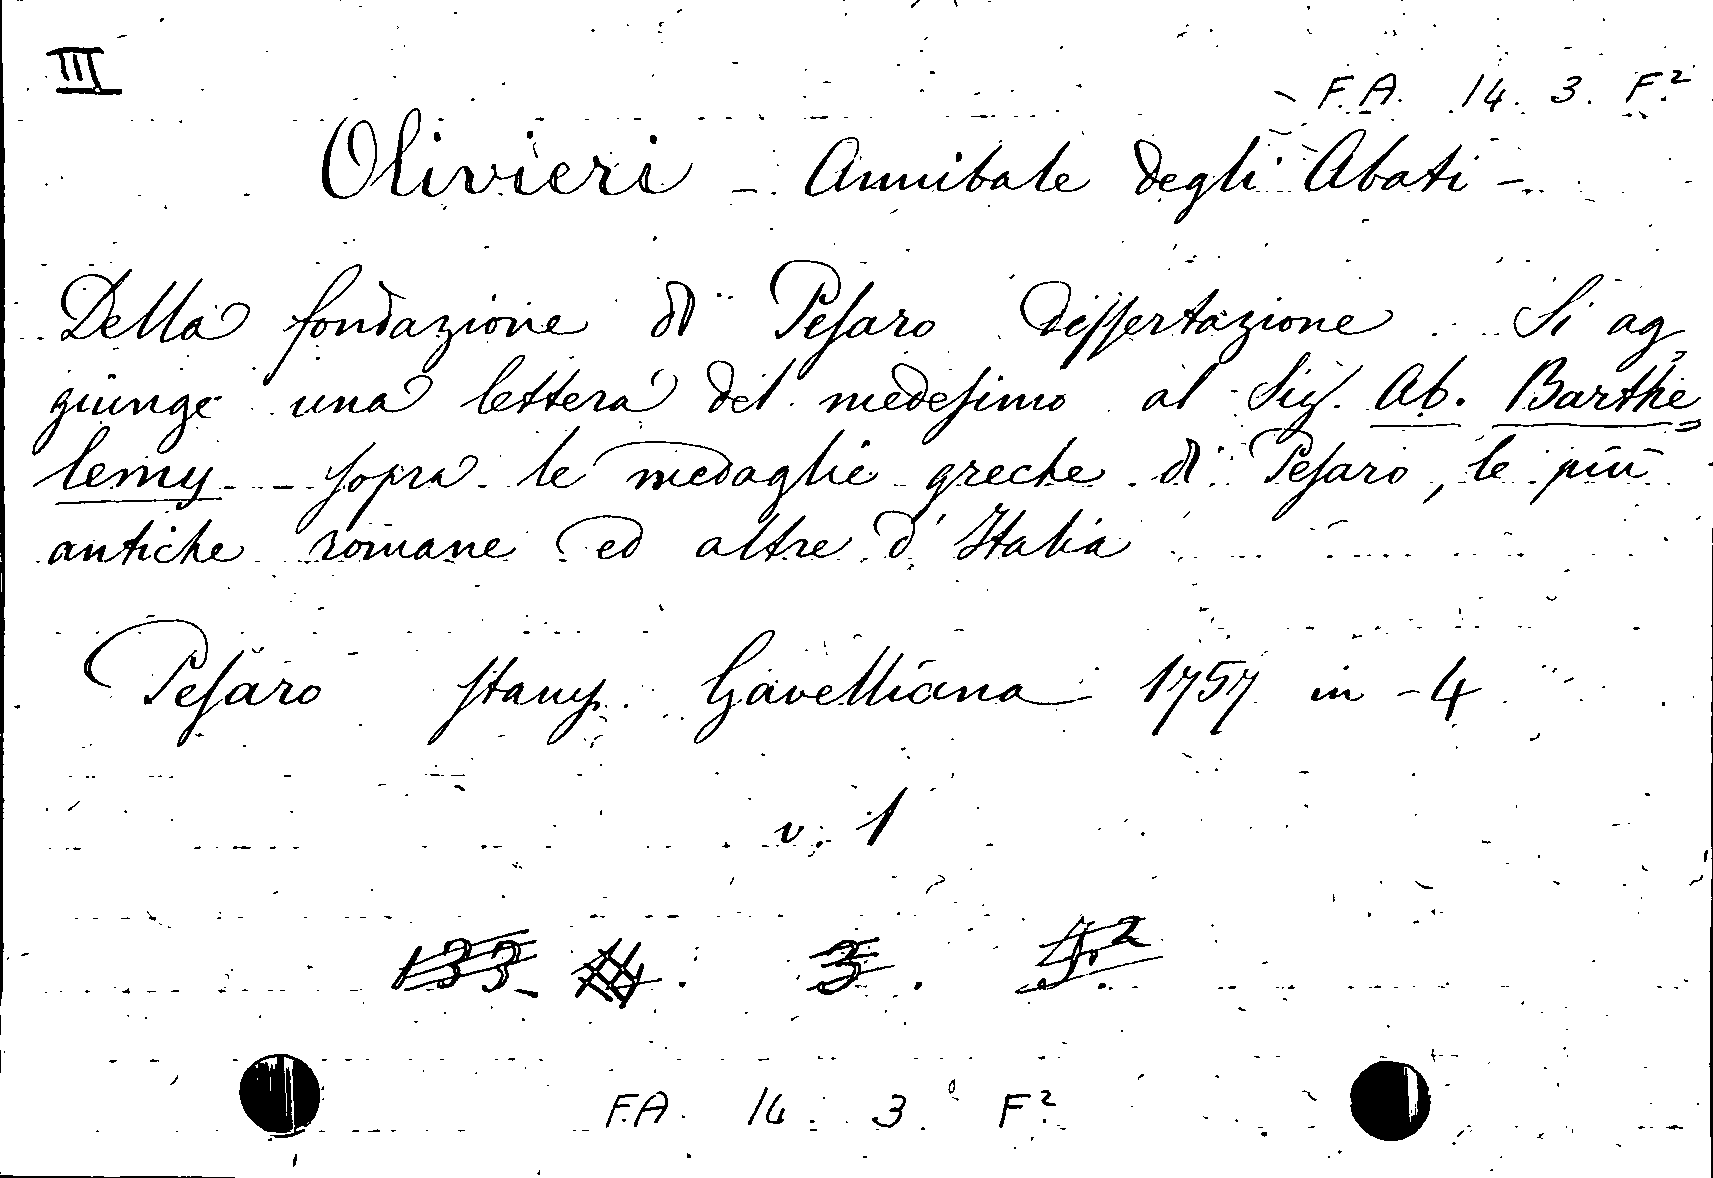 III
F.A. 14. 3. F.²
Olivieri - Annibale degli Abati -
Della fondazione di Pesaro dissertazione. Si ag,
giunge una lettera del medesimo al Sig. Ab. Barthe=
lemy - sopra le medaglie greche di Pesaro, le più
antiche romane ed altre d'Italia
Pesaro stamp. Gavelliana 1757 in - 4
v. 1
133 14. 3. F.²
F.A. 14. 3. F.²